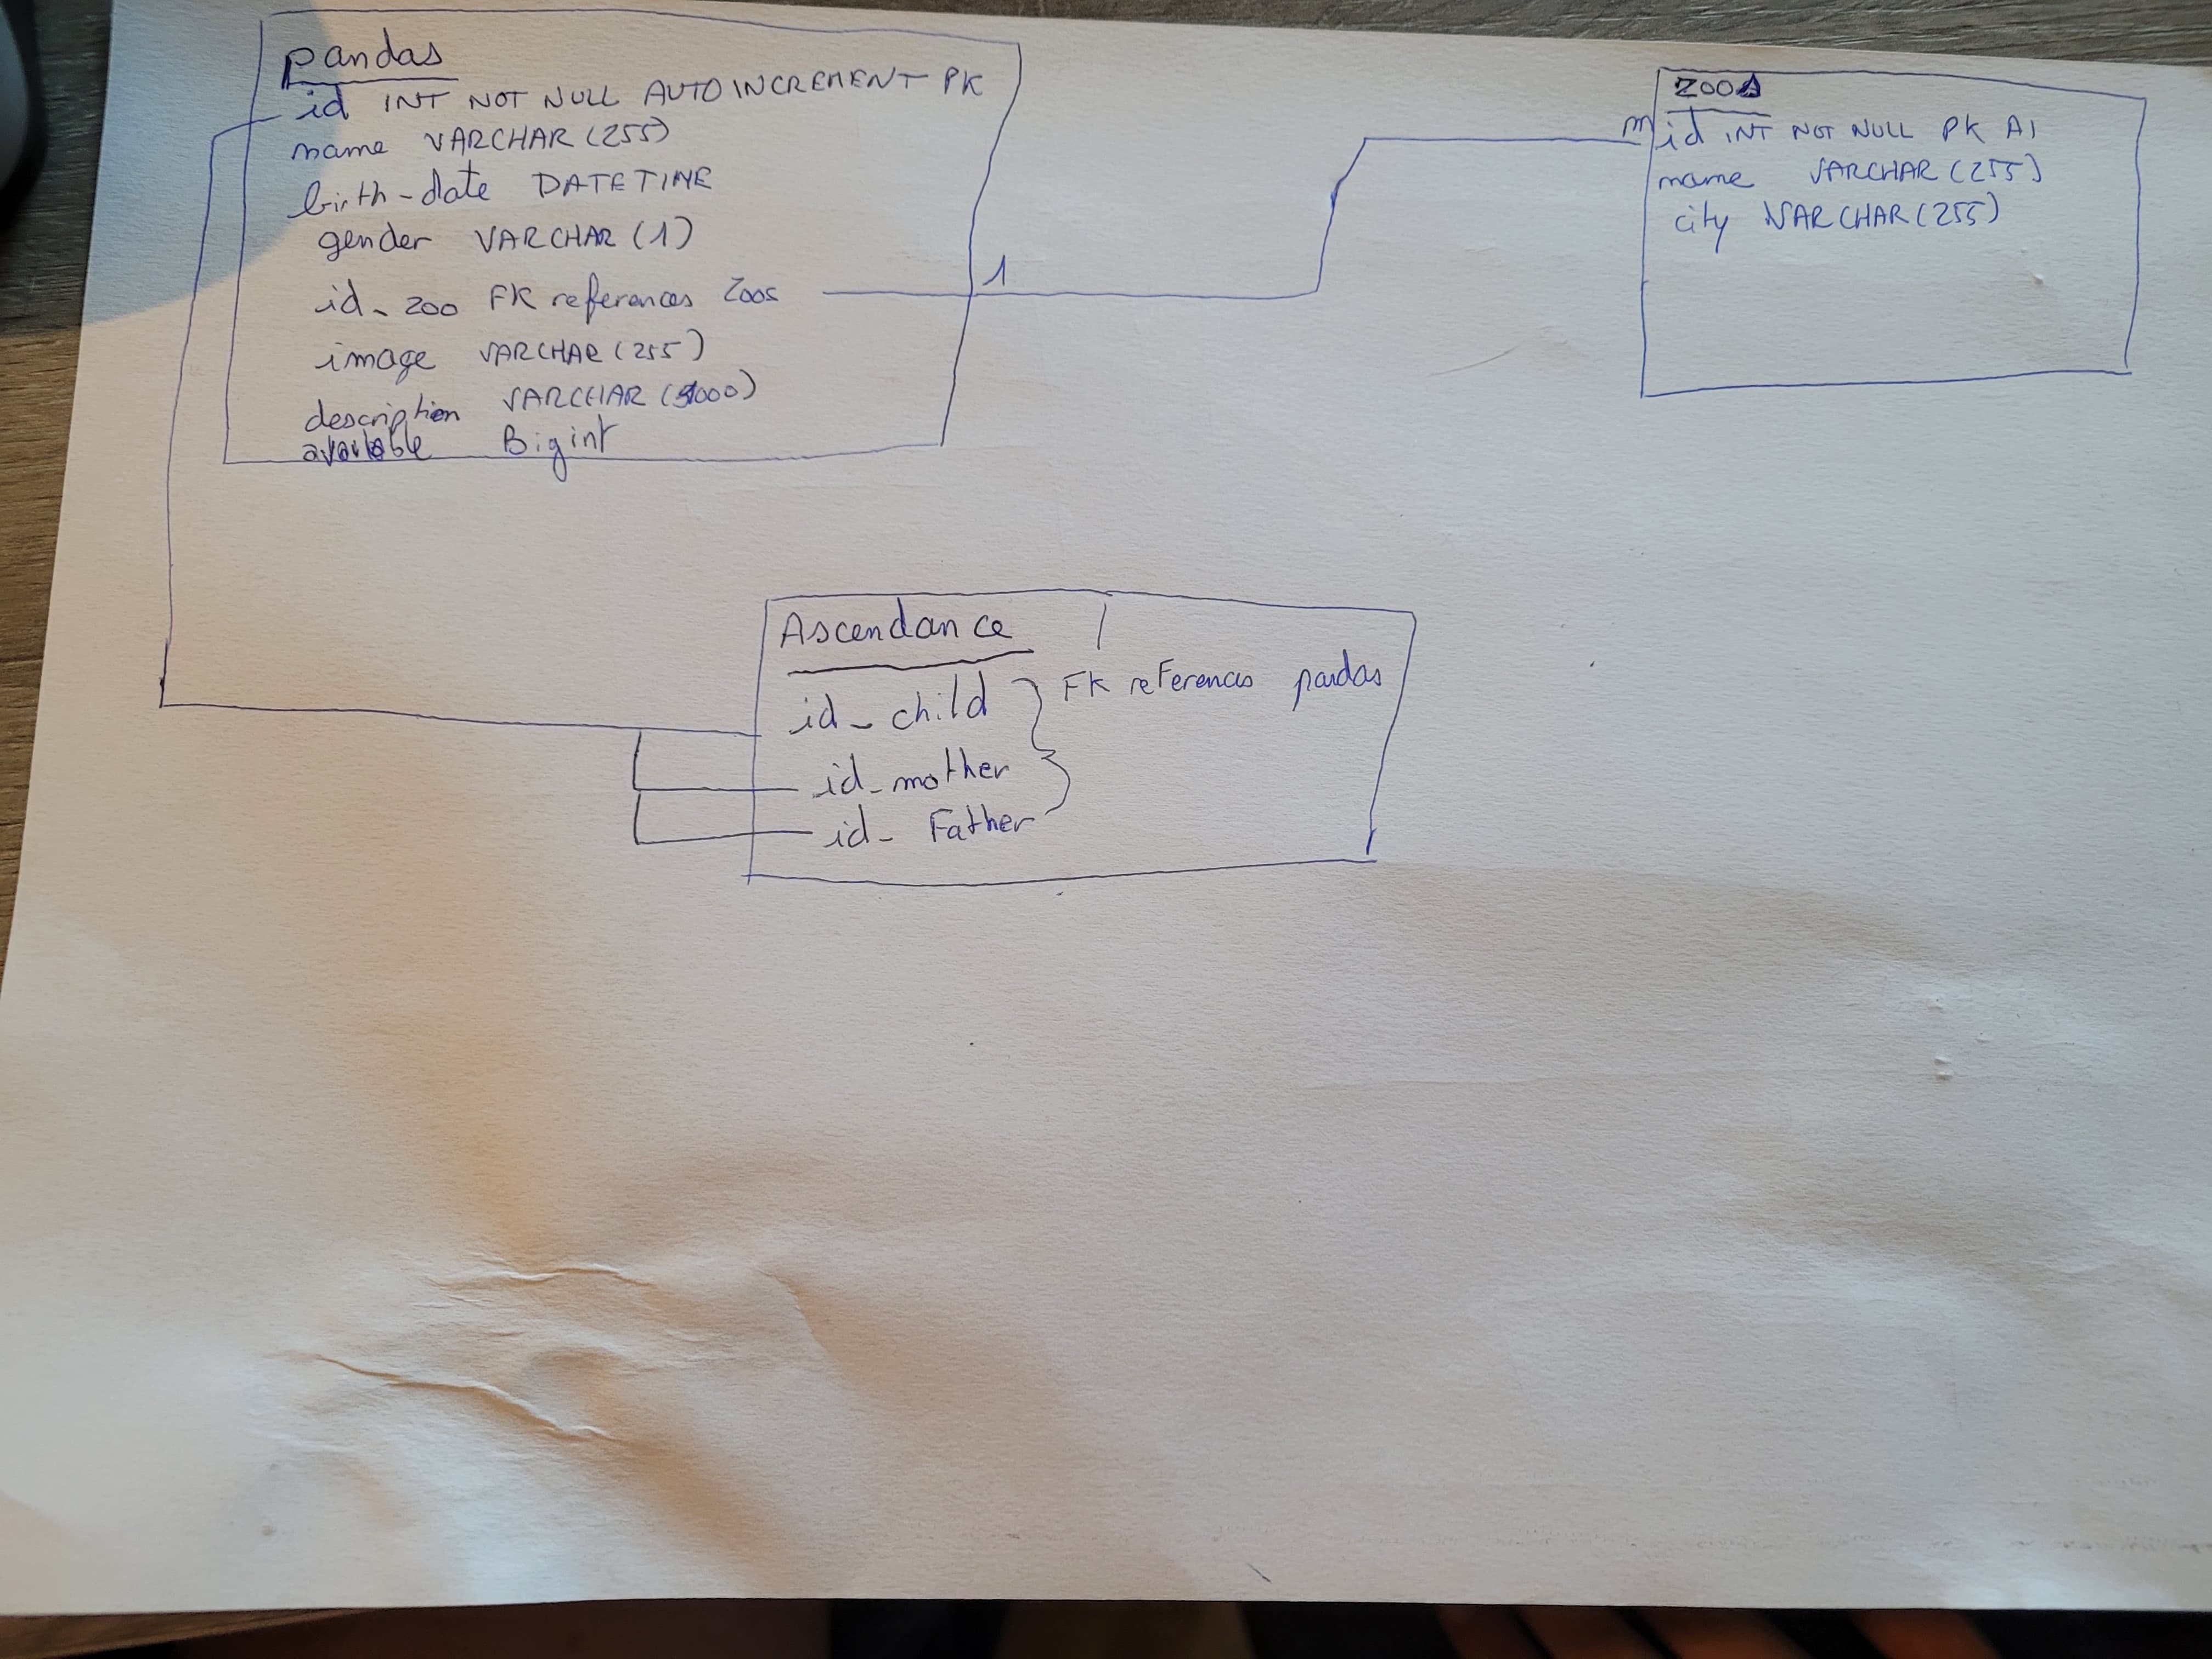 pandas
id INT NOT NULL AUTOINCREMENT PK
name VARCHAR (255)
birth-date DATETIME
gender VARCHAR (1)
id_zoo FK references Zoos
1
image VARCHAR (255)
description VARCHAR (000)
available Bigint
zoos
m
id INT NOT NULL PK AI
name VARCHAR (255)
city VARCHAR (255)
Ascendance
id_child
FK references pandas
id_mother
id_Father